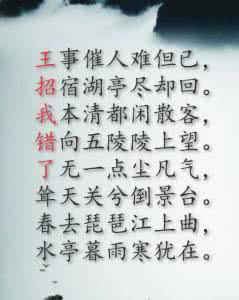 王事催人难但已，
招宿湖亭尽却回。
我本清都闲散客，
错向五陵陵上望。
了无一点尘凡气，
耸天关兮倒景台。
春去琵琶江上曲，
水亭暮雨寒犹在。